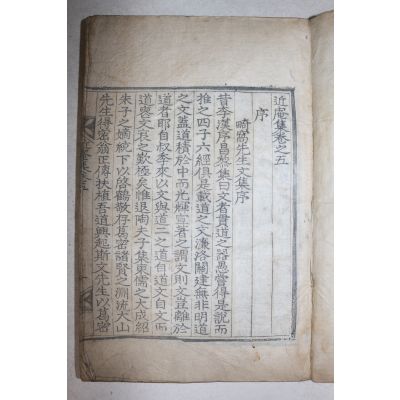 近庵集卷之五
序
畸窩先生文集序
昔李漢序昌黎集曰文者貫道之器愚嘗得是說而
推之四子六經俱是載道之文濂洛關建無非明道
之文盖道積於中而光輝宣著之謂文則文豈離於
道者耶自叔季來以文與道二之道自道文自文而
道喪文衰之歎極矣惟退陶夫子集東儒之大成紹
朱子之嫡統下以啓鶴敬存葛密諸賢之淵流大山
先生得密翁正傳扶植吾道興起斯文先生以葛密